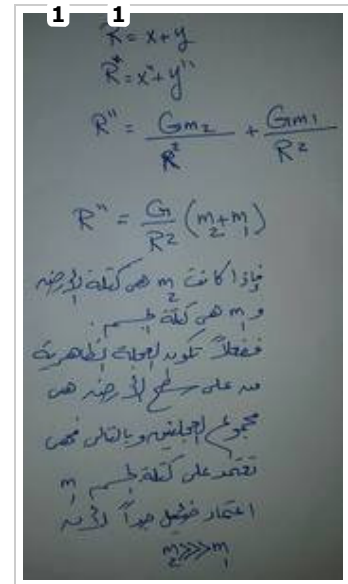 1 1
R = x + y
R" = x" + y"
R" = Gm₂/R² + Gm₁/R²
R" = G/R² (m₂ + m₁)
فإذا كانت m₂ هى كتلة الأرض
و m₁ هى كتلة الجسم .
ففعلاً تكون العجلة الظاهرية
من على سطح الأرض هى
مجموع العجلتين وبالتالى فهى
تعتمد على كتلة الجسم m₁
اعتماد ضئيل جداً لأن
m₂ >>> m₁